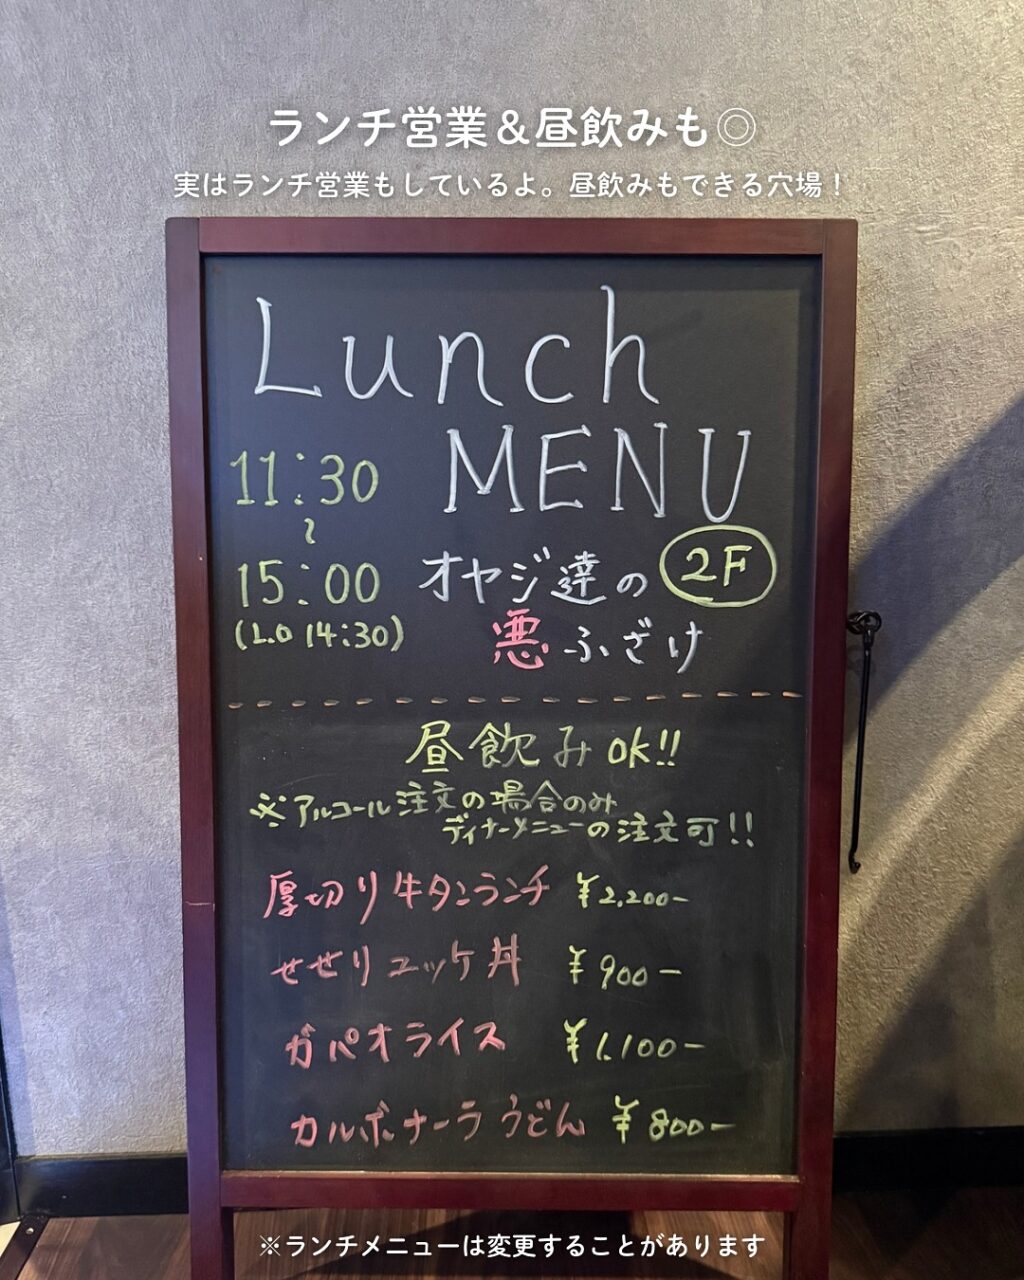 ランチ営業＆昼飲みも◎
実はランチ営業もしているよ。昼飲みもできる穴場！
Lunch
MENU
11:30
〜
15:00
(L.O 14:30)
オヤジ達の 2F
悪ふざけ
昼飲みOK!!
※アルコール注文の場合のみ
ディナーメニューの注文可!!
厚切り牛タンランチ ¥2,200-
せせりユッケ丼 ¥900-
ガパオライス ¥1,100-
カルボナーラうどん ¥800-
※ランチメニューは変更することがあります